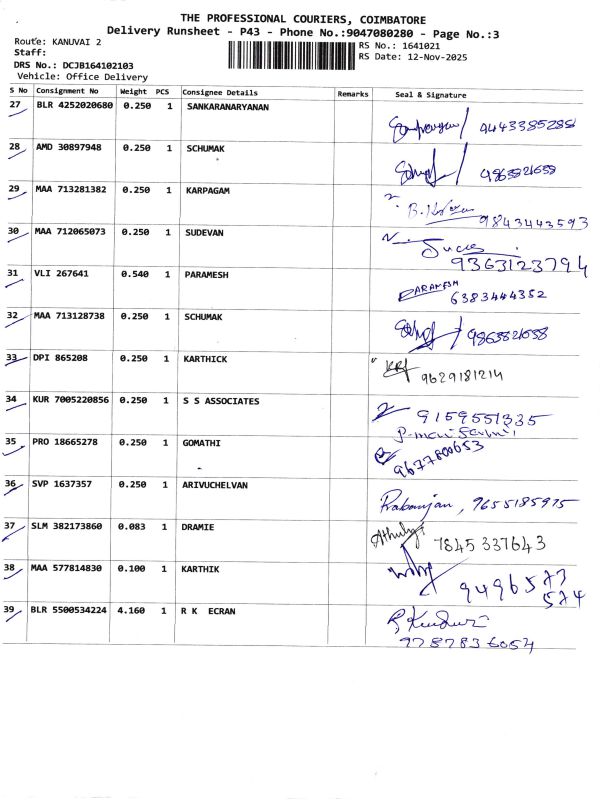 THE PROFESSIONAL COURIERS, COIMBATORE
Delivery Runsheet - P43 - Phone No.:9047080280 - Page No.:3
Route: KANUVAI 2
Staff:
RS No.: 1641021
RS Date: 12-Nov-2025
DRS No.: DCJB164102103
Vehicle: Office Delivery
S No Consignment No Weight PCS Consignee Details Remarks Seal & Signature
27 BLR 4252020680 0.250 1 SANKARANARYANAN
9443385288
28 AMD 30897948 0.250 1 SCHUMAK
9865821658
29 MAA 713281382 0.250 1 KARPAGAM
9843443593
30 MAA 712065073 0.250 1 SUDEVAN
9363123794
31 VLI 267641 0.540 1 PARAMESH
PARAMESH
6383444352
32 MAA 713128738 0.250 1 SCHUMAK
33 DPI 865208 0.250 1 KARTHICK
9629181214
34 KUR 7005220856 0.250 1 S S ASSOCIATES
9159551335
35 PRO 18665278 0.250 1 GOMATHI
9677800653
36 SVP 1637357 0.250 1 ARIVUCHELVAN
Prabanjan, 9655185975
37 SLM 382173860 0.083 1 DRAMIE
7845 337643
38 MAA 577814830 0.100 1 KARTHIK
9496573
574
39 BLR 5500534224 4.160 1 R K ECRAN
9787836054